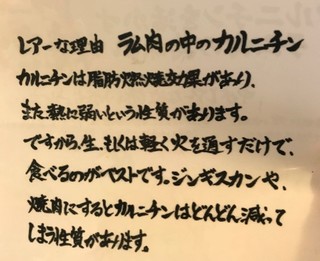 レアーな理由 ラム肉の中のカルニチン
カルニチンは脂肪燃焼効果があり、
また熱に弱いという性質があります。
ですから、生、もしくは軽く火を通すだけで、
食べるのがベストです。ジンギスカンや、
焼肉にするとカルニチンはどんどん減って
しまう性質があります。